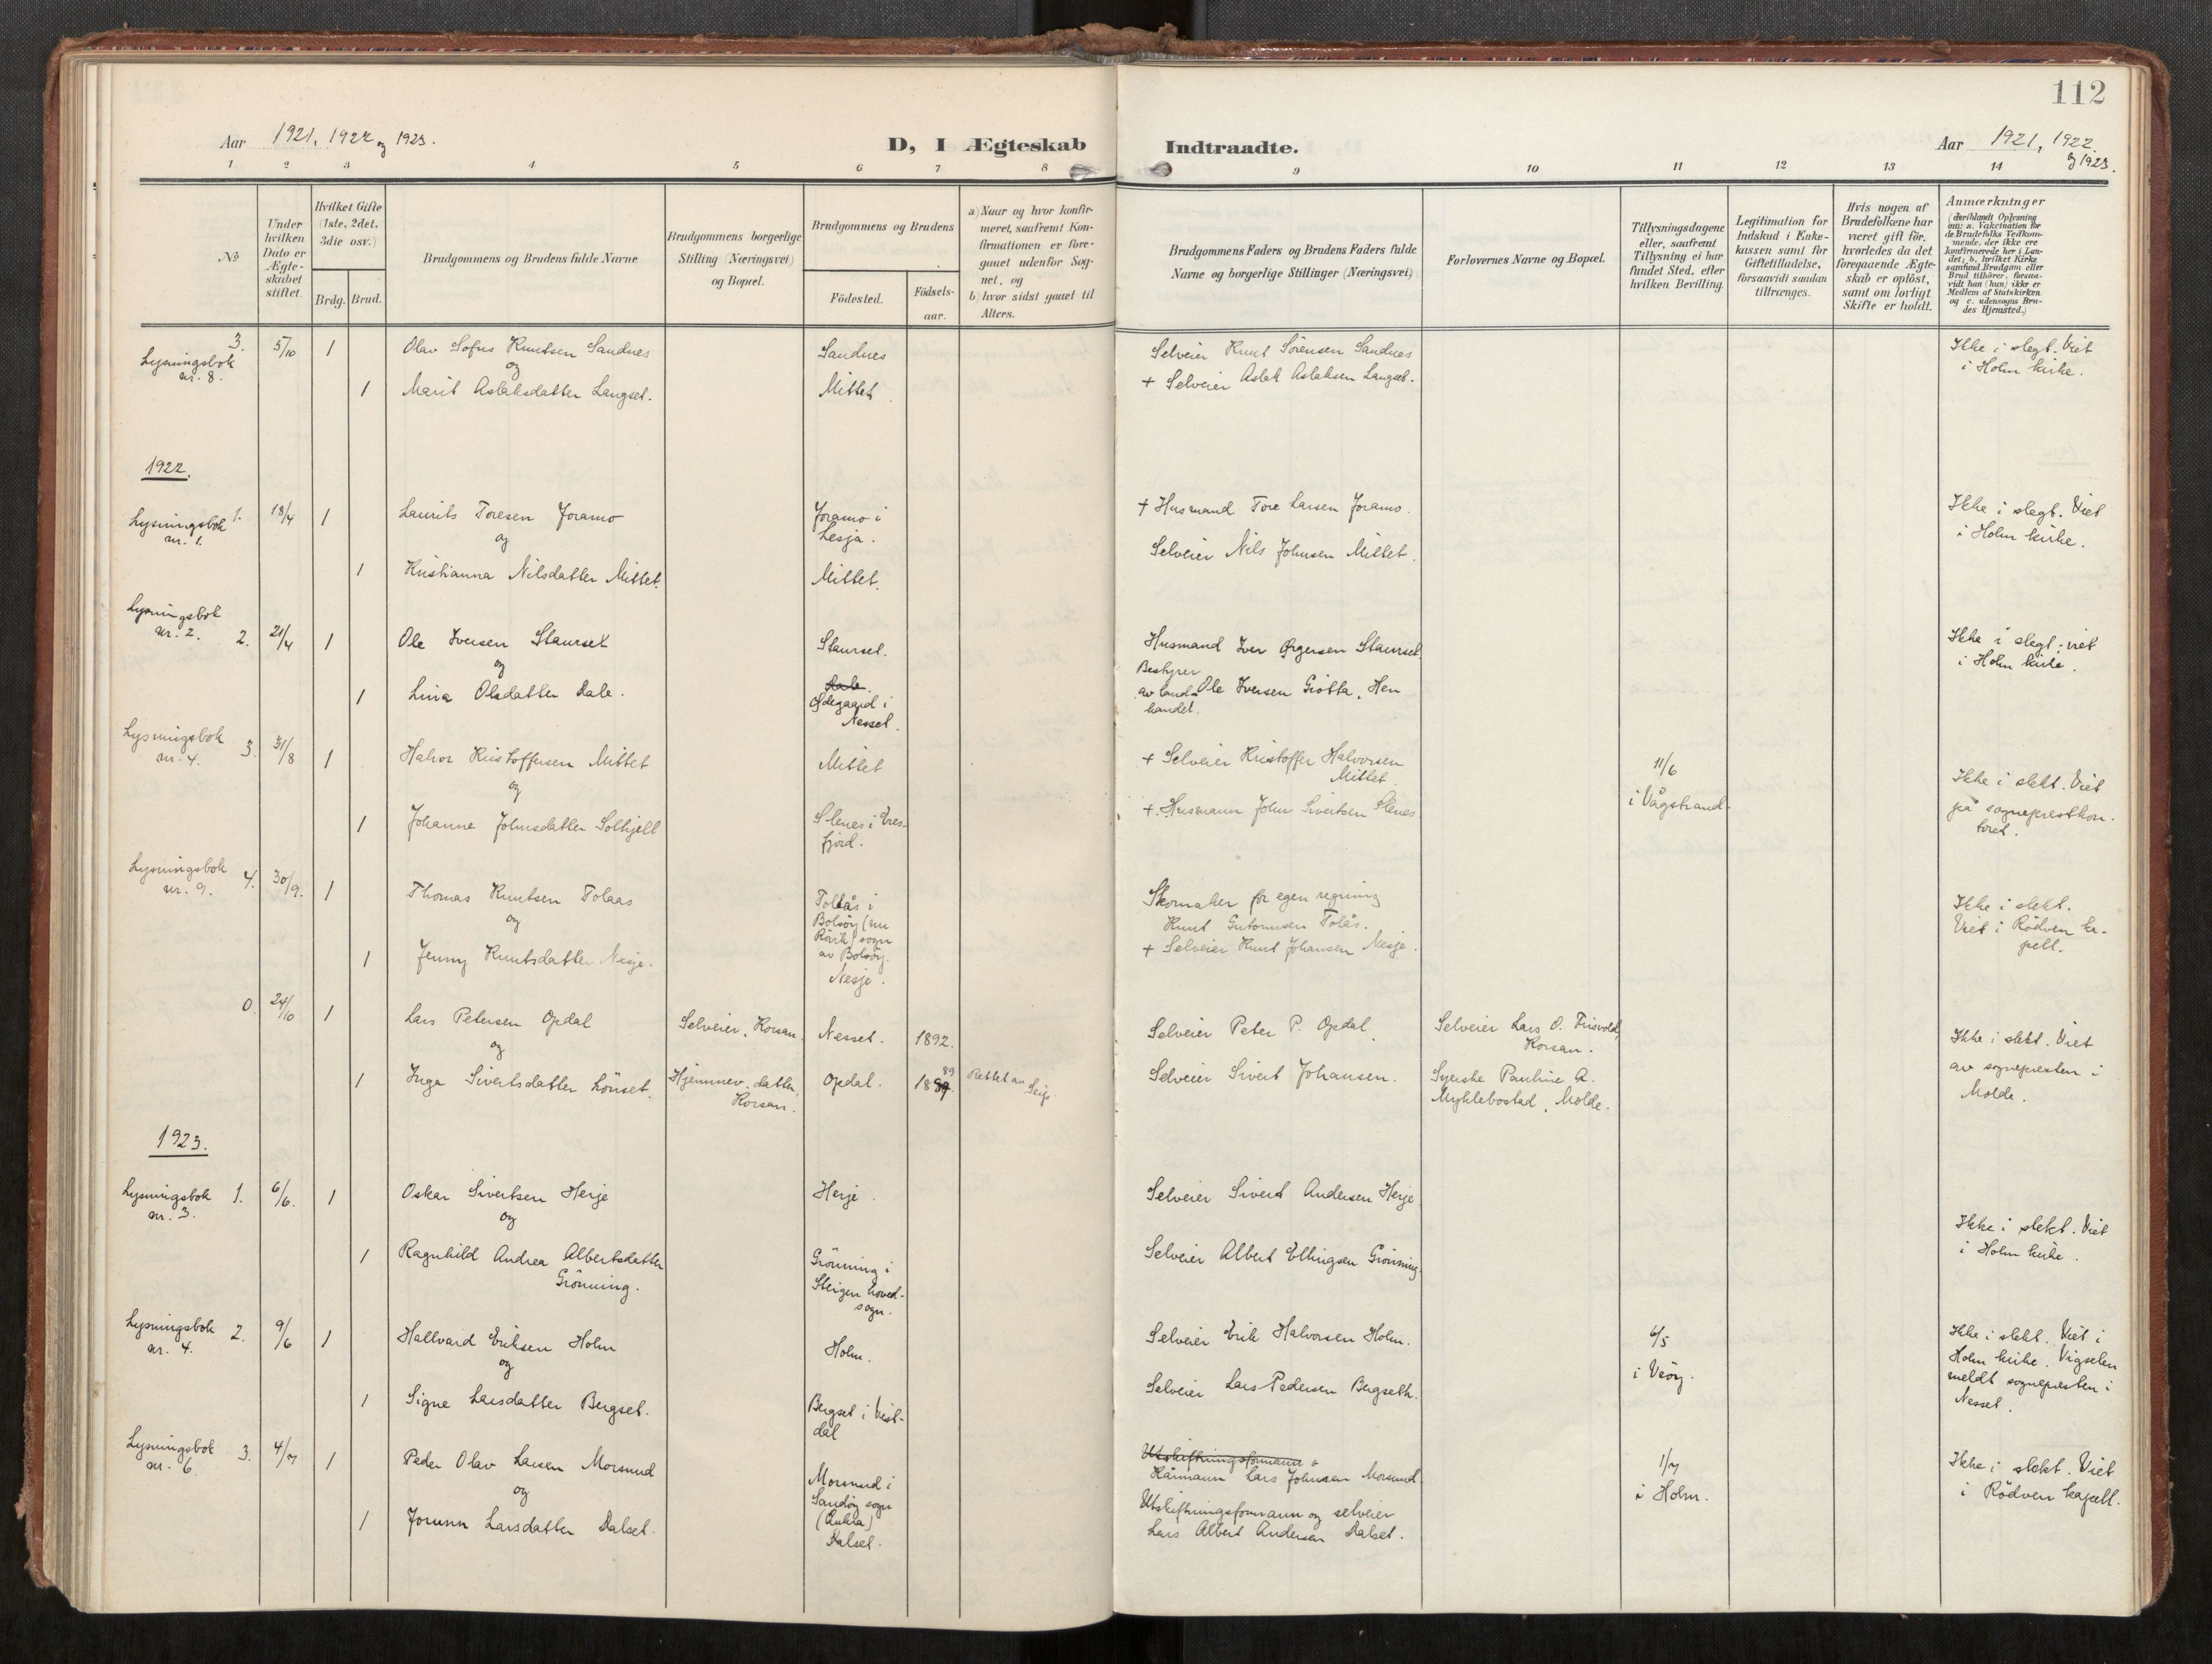 112
Aar 1921, 1922 og 1923.
D, I Ægteskab Indtraadte.
Aar 1921, 1922
og 1923.
1 2 3 4 5 6 7 8 9 10 11 12 13 14
No
Under
hvilken
Dato er
Ægte-
skabet
stiftet.
Hvilket Gifte
(1ste, 2det,
3die osv.)
Brdg. Brud.
Brudgommens og Brudens fulde Navne
Brudgommens borgerlige
Stilling (Næringsvei)
og Bopæl.
Brudgommens og Brudens
Födested.
Födsels-
aar.
a) Naar og hvor konfir-
meret, saafremt Kon-
firmationen er fore-
gaaet udenfor Sog-
net, og
b) hvor sidst gaaet til
Alters.
Brudgommens Faders og Brudens Faders fulde
Navne og borgerlige Stillinger (Næringsvei)
Forlovernes Navne og Bopæl.
Tillysningsdagene
eller, saafremt
Tillysning ei har
fundet Sted, efter
hvilken Bevilling.
Legitimation for
Indskud i Enke-
kassen samt for
Giftetilladelse,
forsaavidt saadan
tiltrænges.
Hvis nogen af
Brudefolkene har
været gift för,
hvorledes da det
foregaaende Ægte-
skab er oplöst,
samt om lovligt
Skifte er holdt.
Anmærkninger
(deriblandt Oplysning
om: a. Vakcination for
de Brudefolks Vedkom-
mende, der ikke ere
konfirmerede her i Lan-
det; b. hvilket Kirke-
samfund Brudgom eller
Brud tilhörer, forsaa-
vidt han (hun) ikke er
Medlem af Statskirken
og c. udensogns Bru-
des Hjemsted.)
Lysningsbok
nr. 8.
3. 5/10 1 Olav Sofus Knutsen Sandnes
og
1 Marit Aslaksdatter Langset.
Sandnes
Mittet
Selveier Knut Sörensen Sandnes
+ Selveier Aslak Aslaksen Langset.
Ikke i slegt. Viet
i Holm kirke.
1922.
Lysningsbok
nr. 1.
1. 18/4 1 Laurits Toresen Joramo
og
1 Kristianna Nilsdatter Mittet.
Joramo i
Lesja.
Mittet.
+ Husmand Tore Larsen Joramo.
Selveier Nils Johnsen Mittet.
Ikke i slegt. Viet
i Holm kirke.
Lysningsbok
nr. 2.
2. 21/4 1 Ole Iversen Staurset
og
1 Lina Olsdatter Dale.
Staurset.
Dale.
Ödegaard i
Nesset.
Husmand Iver Ørgersen Staurset.
Bestyrer
av land-
handel.
Ole Iversen Grötta, Hen
Ikke i slegt; viet
i Holm kirke.
Lysningsbok
nr. 4.
3. 31/8 1 Halvor Kristoffersen Mittet
og
1 Johanne Johnsdatter Solhjell
Mittet
Slenes i Eres-
fjord.
+ Selveier Kristoffer Halvorsen
Mittet.
+ Husmann John Sivertsen Slenes
11/6
i Vågstrand.
Ikke i slekt. Viet
på sogneprestkon-
toret.
Lysningsbok
nr. 9.
4. 30/9. 1 Thomas Knutsen Tolaas
og
1 Jenny Knutsdatter Nesje.
Tollås i
Bolsöy (nu
Rövik) sogn
av Bolsöy.
Nesje.
Skomaker for egen regning
Knut Gutormsen Tolås.
+ Selveier Knut Johansen Nesje.
Ikke i slekt.
Viet i Rödven ka-
pell.
0. 24/10 1 Lars Petersen Opdal
og
1 Inga Sivertsdatter Lönset.
Selveier, Korsan.
Hjemmev. datter,
Korsan.
Nesset.
Opdal.
1892.
89
1889.
Rettet av
Selveier Peter P. Opdal.
Selveier Sivert Johansen.
Selveier Lars O. Frisvold,
Korsan.
Syerske Pauline A.
Myklebostad, Molde.
Ikke i slekt. Viet
av sognepresten i
Molde.
1923.
Lysningsbok
nr. 3.
1. 6/6. 1 Oskar Sivertsen Herje
og
1 Ragnhild Andrea Albertsdatter
Grönning.
Herje.
Grönning i
Steigen hoved-
sogn.
Selveier Sivert Andersen Herje
Selveier Albert Ellingsen Grönning.
Ikke i slekt. Viet
i Holm kirke.
Lysningsbok
nr. 4.
2. 9/6 1 Hallvard Eriksen Holm
og
1 Signe Larsdatter Bergset.
Holm.
Bergset i Vist-
dal
Selveier Erik Halvorsen Holm.
Selveier Lars Pedersen Bergseth.
6/5
i Veöy.
Ikke i slekt. Viet i
Holm kirke. Vigselen
meldt sognepresten i
Nesset.
Lysningsbok
nr. 6.
3. 4/7 1 Peder Olav Larsen Morsund
og
1 Jorunn Larsdatter Dalset.
Morsund i
Sandöy sogn
(Aukra)
Dalset.
Utskiftningsformann
Kårmann Lars Johnsen Morsund
Utskiftningsformann og selveier
Lars Albert Andersen Dalset.
1/7
i Holm.
Ikke i slekt. Viet
i Rödven kapell.